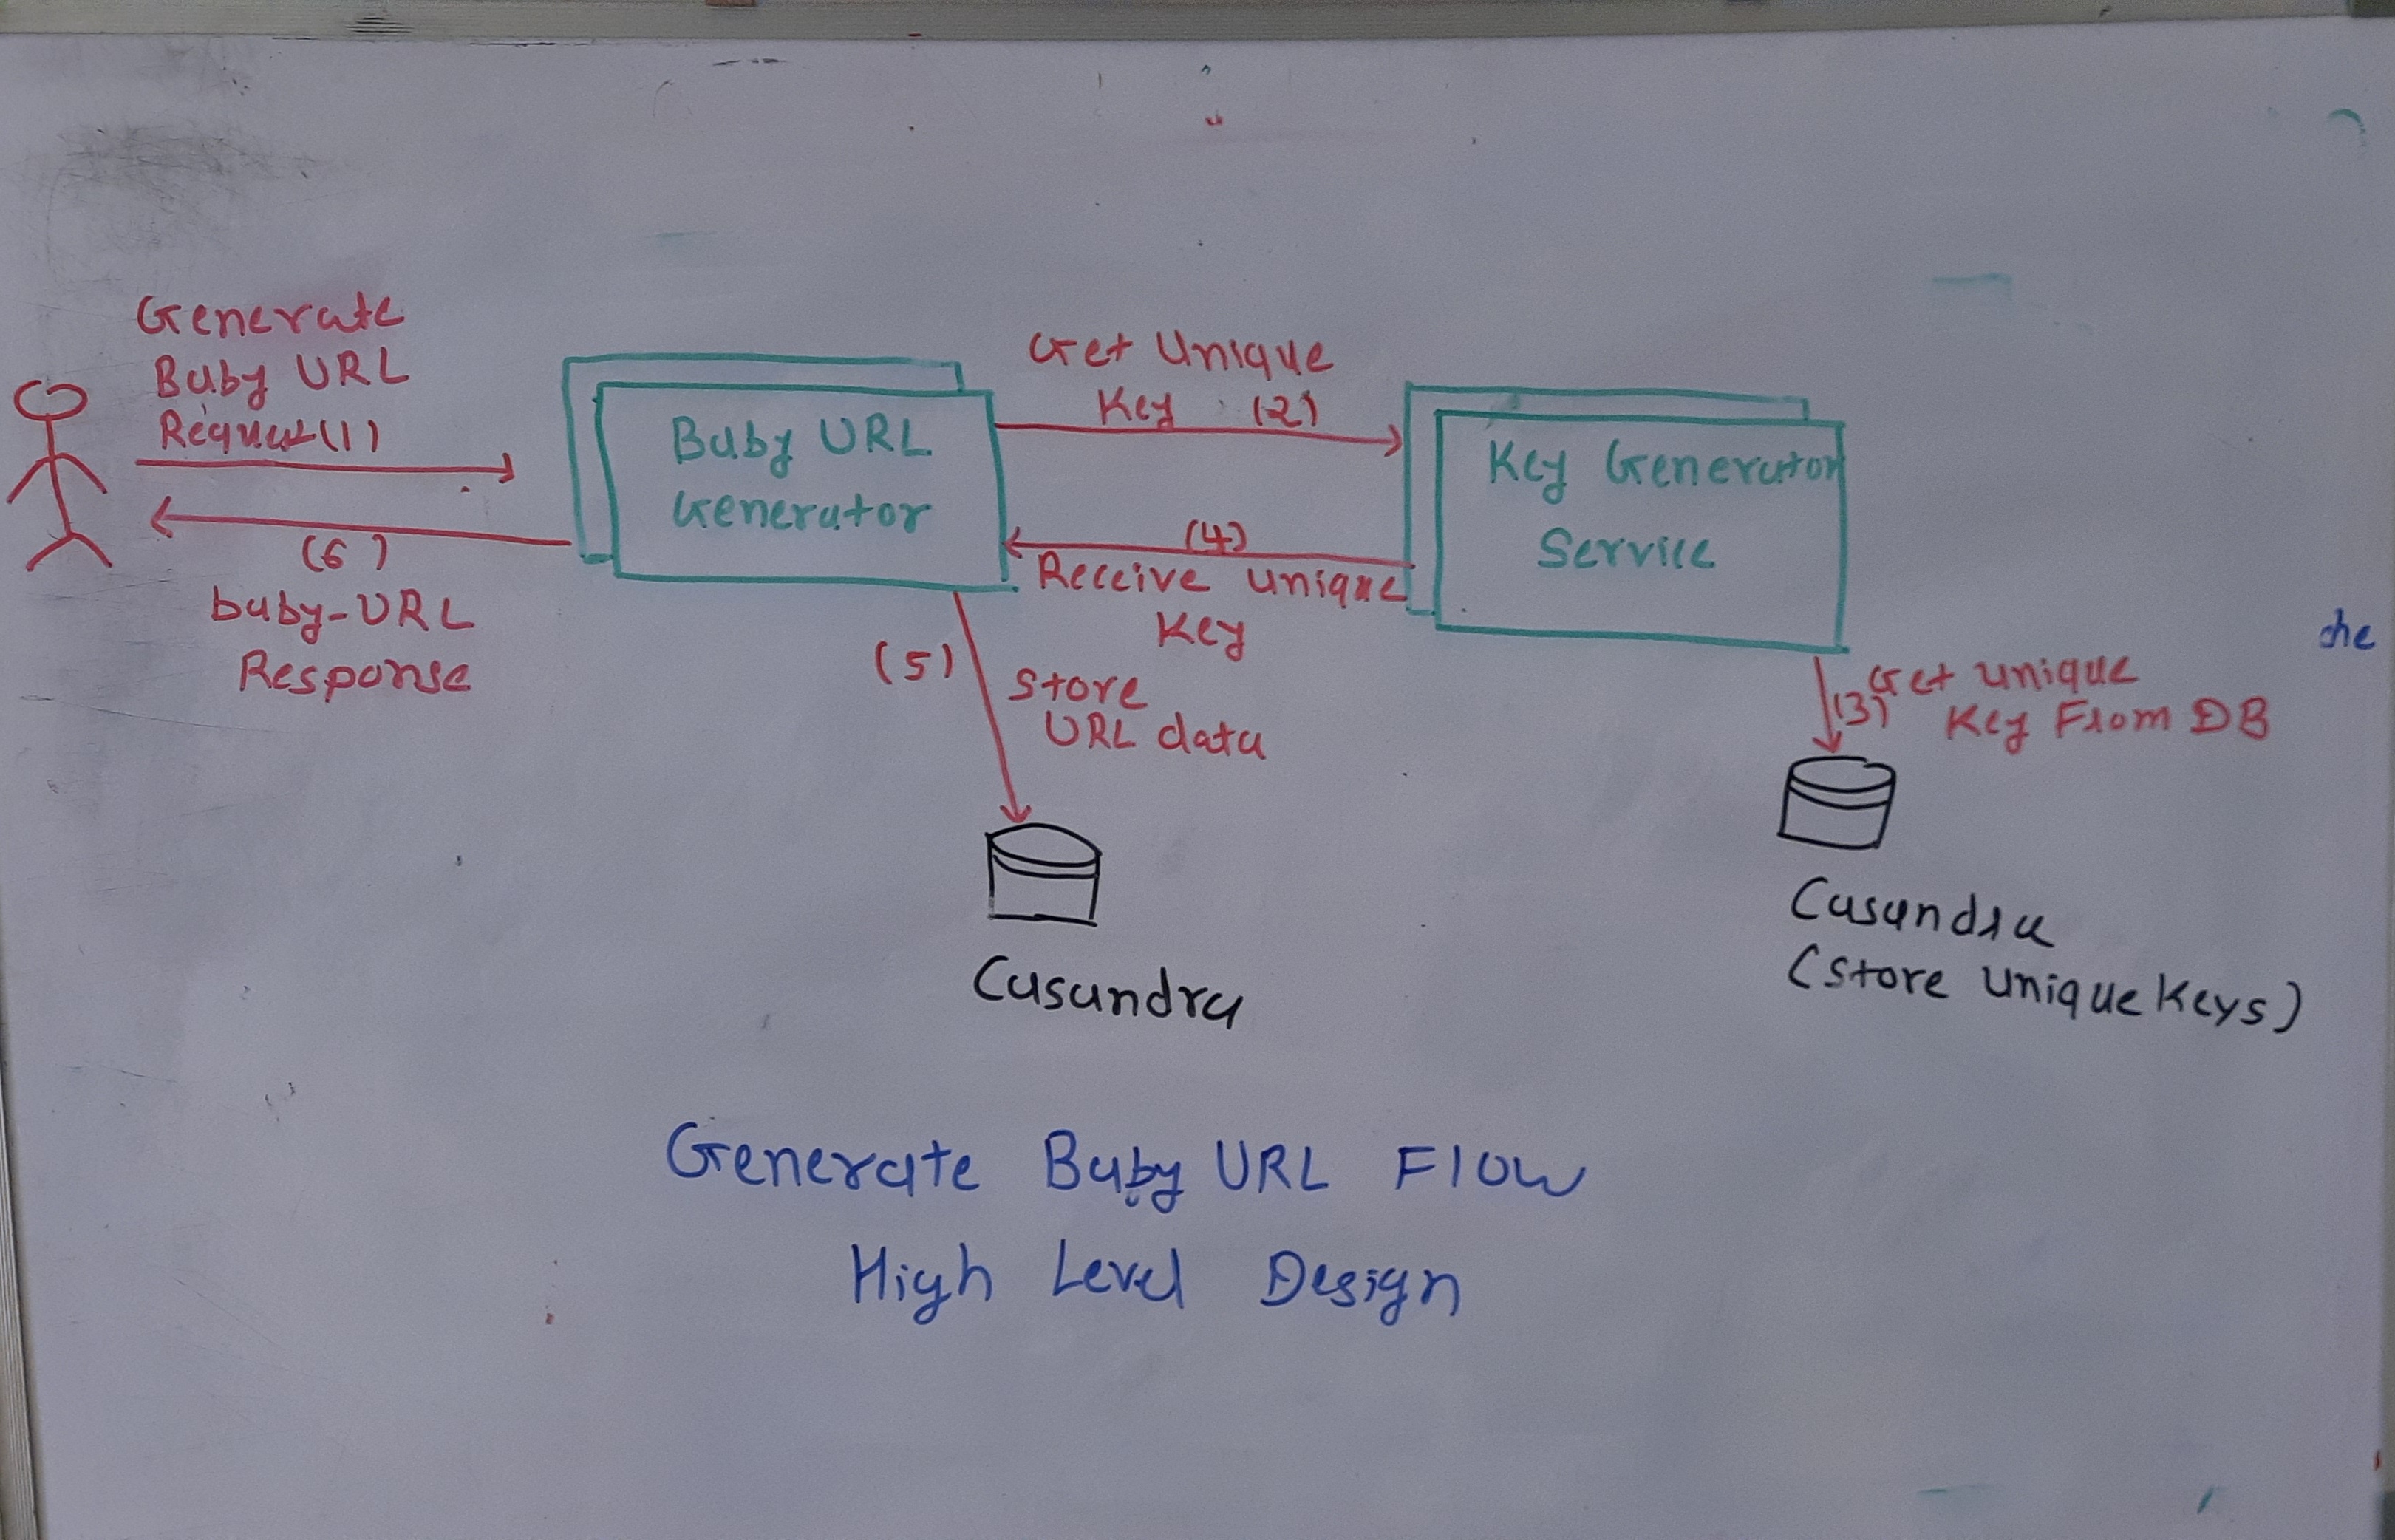 Generate
Baby URL
Request (1)
(6)
baby-URL
Response
Baby URL
Generator
Get Unique
Key (2)
(4)
Receive unique
Key
Key Generator
Service
(5)
Store
URL data
Get unique
(3) Key From DB
Casandra
Casandra
(Store Unique Keys)
che
Generate Baby URL Flow
High Level Design